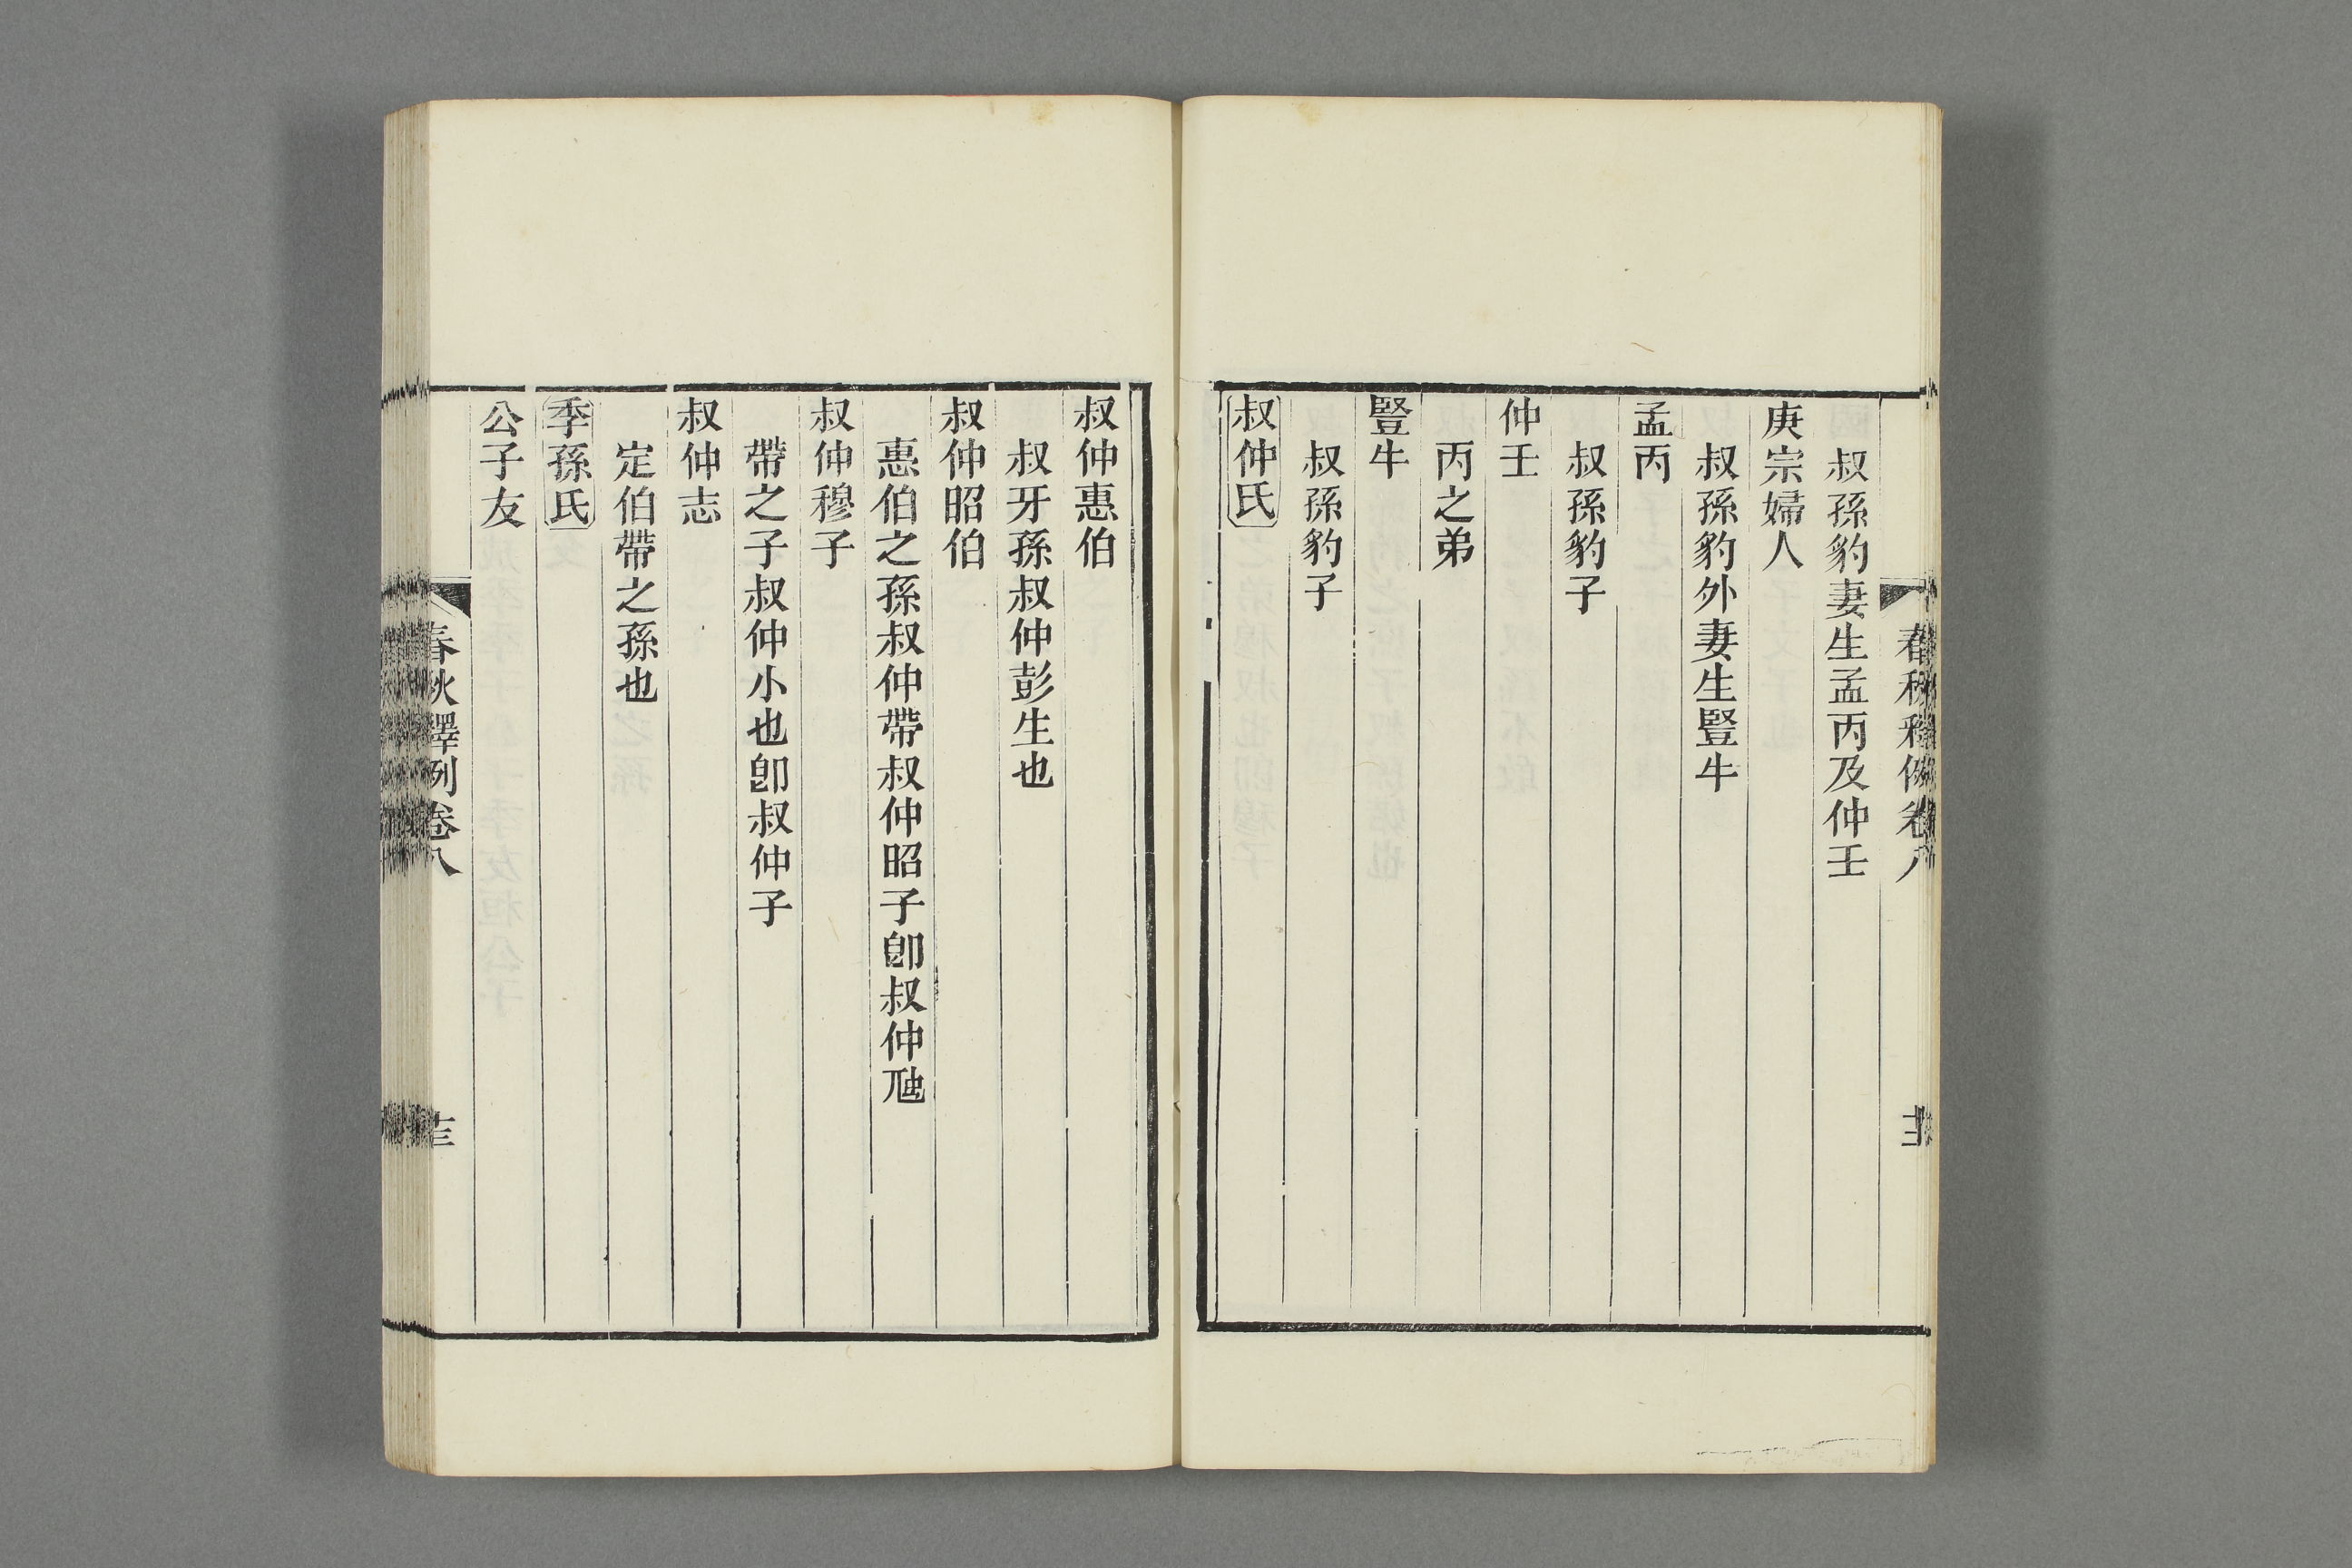 叔孫豹妻生孟丙及仲壬
庚宗婦人
叔孫豹外妻生豎牛
孟丙
叔孫豹子
仲壬
丙之弟
豎牛
叔孫豹子
叔仲氏
叔仲惠伯
叔牙孫叔仲彭生也
叔仲昭伯
惠伯之孫叔仲帶叔仲昭子卽叔仲虺
叔仲穆子
帶之子叔仲小也卽叔仲子
叔仲志
定伯帶之孫也
季孫氏
公子友
春秋釋例卷八